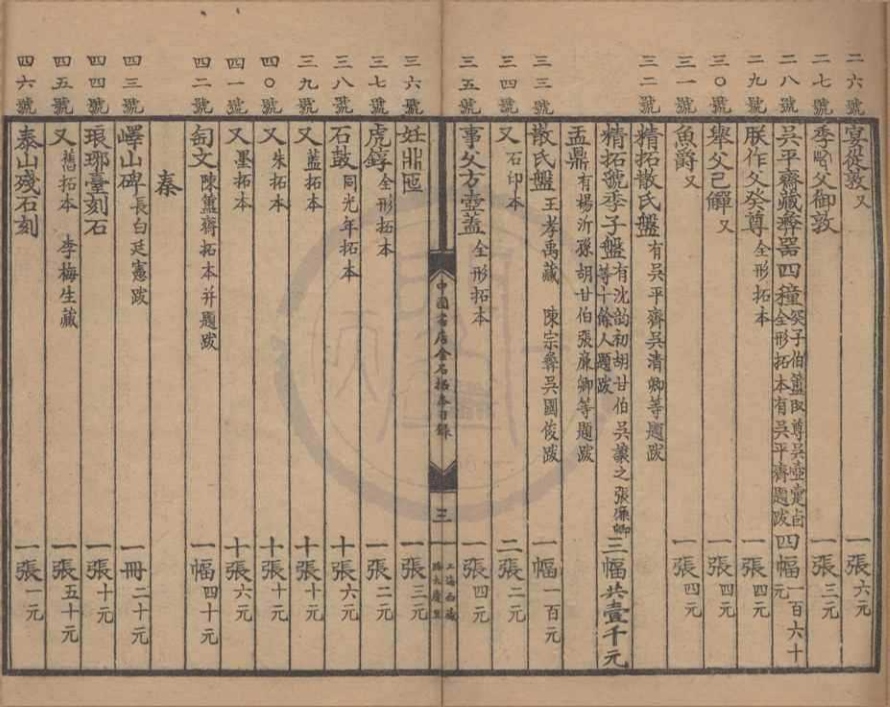 二六號 宴從敦 又 一張 六元
二七號 季㝬父御敦 一張 三元
二八號 吳平齋藏彝器四種 癸子伯簠 取尊 吳壺 全形拓本有吳平齊題跋 四幅 一百六十元
二九號 朕作父癸尊 全形拓本 一張 四元
三〇號 舉父己觶 又 一張 四元
三一號 魚爵 又 一張 四元
三二號 精拓散氏盤 有吳平齊吳清卿等題跋
精拓虢季子盤 有沈韵初胡甘伯吳讓之張廉卿等十餘人題跋 三幅 共壹千元
盂鼎 有楊沂孫胡甘伯張廉卿等題跋
三三號 散氏盤 王孝禹藏 陳宗彝吳國俊跋 一幅 一百元
三四號 又 石印本 二張 二元
三五號 事父方壺蓋 全形拓本 一張 四元
中國書店金石拓本目錄
三
三六號 妵鼎匜 一張 三元
三七號 虎錞 全形拓本 一張 二元
三八號 石鼓 同光年拓本 十張 六元
三九號 又 藍拓本 十張 十元
四〇號 又 朱拓本 十張 十元
四一號 又 墨拓本 十張 六元
四二號 匋文 陳簠齋拓本并題跋 一幅 四十元
秦
四三號 嶧山碑 長白廷憲跋 一冊 二十元
四四號 琅琊臺刻石 一張 十元
四五號 又 舊拓本 李梅生藏 一張 五十元
四六號 泰山殘石刻 一張 一元